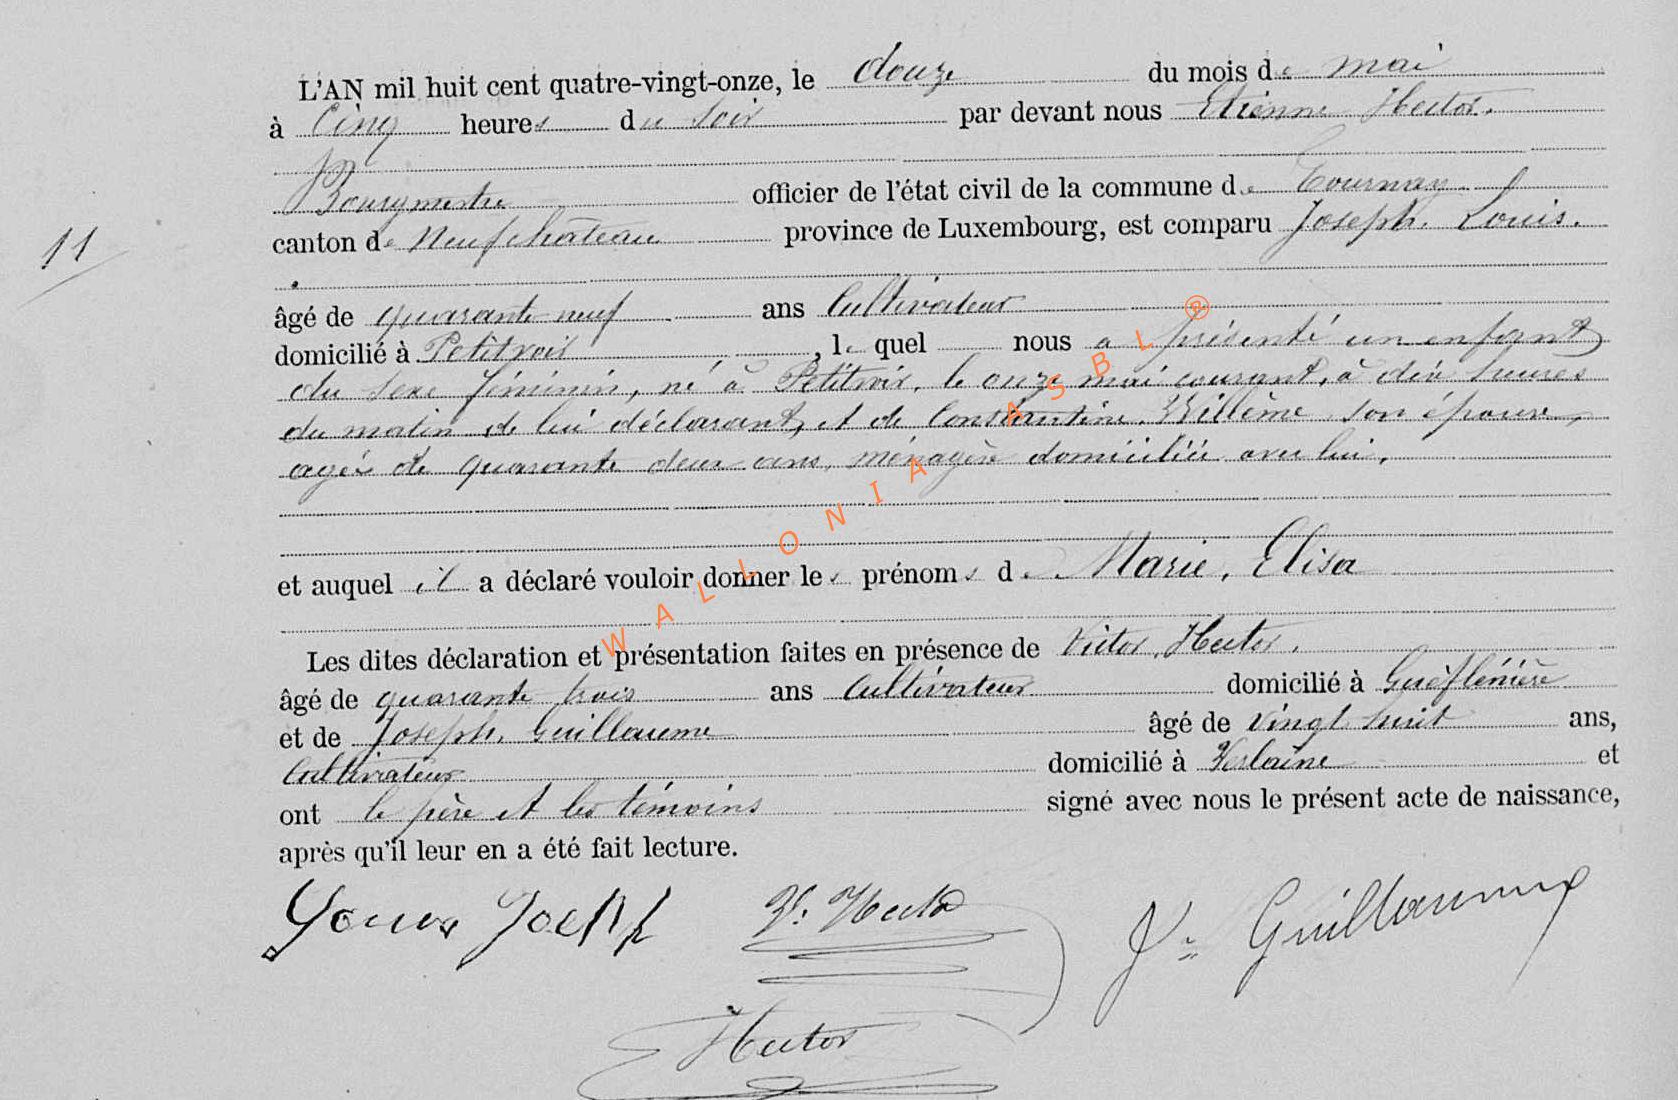 L'AN mil huit cent quatre-vingt-onze, le douze du mois de mai
à Cinq heures du Soir par devant nous Etienne Hector.
Bourgmestre officier de l'état civil de la commune de Tournay
11 canton de Neufchâteau province de Luxembourg, est comparu Joseph. Louis.
âgé de quarante neuf ans Cultivateur
domicilié à Petitvoir, le quel nous a présenté un enfant
du sexe féminin, né à Petitvoir, le onze mai courant, à dix heures
du matin de lui déclarant, et de Constantine. Willème son épouse,
agée de quarante deux ans, ménagère domiciliée avec lui.
et auquel il a déclaré vouloir donner les prénoms de Marie. Elisa
Les dites déclaration et présentation faites en présence de Victor. Hector.
âgé de quarante trois ans Cultivateur domicilié à
et de Joseph. Guillaume âgé de vingt huit ans,
Cultivateur domicilié à Verlaine et
ont le père et les témoins signé avec nous le présent acte de naissance,
après qu'il leur en a été fait lecture.
Joseph V. Hector J. Guillaume
Hector
WALLONIA ASBL ®